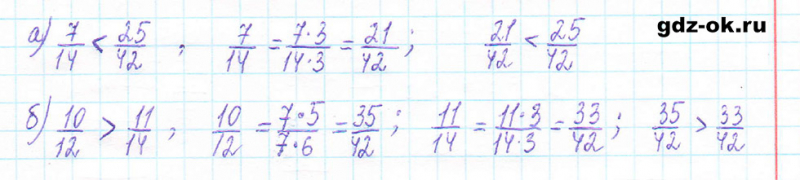 gdz-ok.ru
а) 7/14 < 25/42 ; 7/14 = 7·3/14·3 = 21/42 ; 21/42 < 25/42
б) 10/12 > 11/14 ; 10/12 = 7·5/7·6 = 35/42 ; 11/14 = 11·3/14·3 = 33/42 ; 35/42 > 33/42